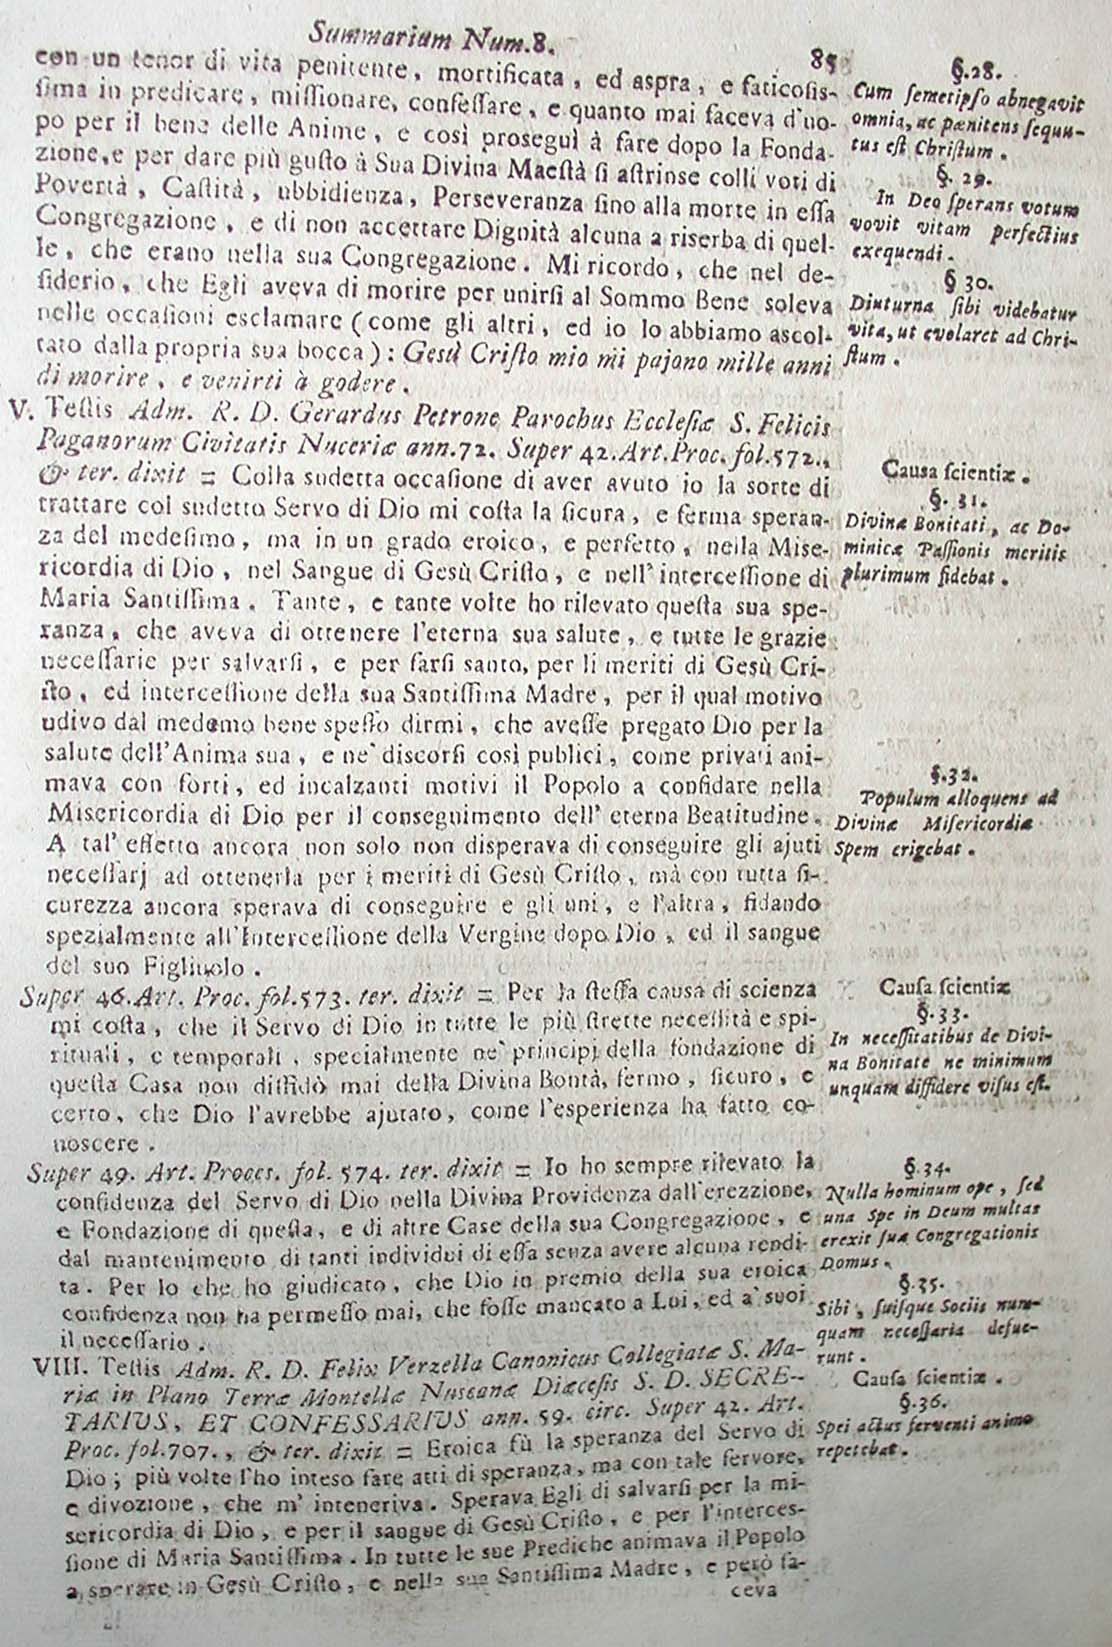 Summarium Num.8.
85
con un tenor di vita penitente, mortificata, ed aspra, e faticosis-
sima in predicare, missionare, confessare, e quanto mai faceva d'uo-
po per il bene delle Anime, e così proseguì à fare dopo la Fonda-
zione, e per dare più gusto à Sua Divina Maestà si astrinse colli voti di
Povertà, Castità, ubbidienza, Perseveranza sino alla morte in essa
Congregazione, e di non accettare Dignità alcuna a riserba di quel-
le, che erano nella sua Congregazione. Mi ricordo, che nel de-
siderio, che Egli aveva di morire per unirsi al Sommo Bene soleva
nelle occasioni esclamare (come gli altri, ed io lo abbiamo ascol-
tato dalla propria sua bocca): Gesù Cristo mio mi pajono mille anni
di morire, e venirti à godere.
§.28.
Cum semetipso abnegavit
omnia, ac pænitens sequu-
tus est Christum.
§. 29.
In Deo sperans votum
vovit vitam perfectius
exequendi.
§ 30.
Diuturna sibi videbatur
vita, ut evolaret ad Chri-
stum.
V. Testis Adm. R. D. Gerardus Petrone Parochus Ecclesiæ S. Felicis
Paganorum Civitatis Nuceriæ ann.72. Super 42.Art.Proc.fol.572.,
& ter. dixit = Colla sudetta occasione di aver avuto io la sorte di
trattare col sudetto Servo di Dio mi costa la sicura, e ferma speran-
za del medesimo, ma in un grado eroico, e perfetto, nella Mise-
ricordia di Dio, nel Sangue di Gesù Cristo, e nell'intercessione di
Maria Santissima. Tante, e tante volte ho rilevato questa sua spe-
ranza, che aveva di ottenere l'eterna sua salute, e tutte le grazie
necessarie per salvarsi, e per farsi santo, per li meriti di Gesù Cri-
sto, ed intercessione della sua Santissima Madre, per il qual motivo
udivo dal medemo bene spesso dirmi, che avesse pregato Dio per la
salute dell'Anima sua, e ne' discorsi così publici, come privati ani-
mava con forti, ed incalzanti motivi il Popolo a confidare nella
Misericordia di Dio per il conseguimento dell' eterna Beatitudine.
A tal' effetto ancora non solo non disperava di conseguire gli ajuti
necessarj ad ottenerla per i meriti di Gesù Cristo, mà con tutta si-
curezza ancora sperava di conseguire e gli uni, e l'altra, fidando
spezialmente all'Intercessione della Vergine dopo Dio, ed il sangue
del suo Figliuolo.
Causa scientiæ.
§. 31.
Divinæ Bonitati, ac Do-
minicæ Passionis meritis
plurimum fidebat.
§.32.
Populum alloquens ad
Divinæ Misericordiæ
Spem erigebat.
Super 46.Art. Proc. fol.573. ter. dixit = Per la stessa causa di scienza
mi costa, che il Servo di Dio in tutte le più strette necessità e spi-
rituali, e temporali, specialmente ne' principj della fondazione di
questa Casa non diffidò mai della Divina Bontà, fermo, sicuro, e
certo, che Dio l'avrebbe ajutato, come l'esperienza ha fatto co-
noscere.
Causa scientiæ
§.33.
In necessitatibus de Divi-
na Bonitate ne minimum
unquam diffidere visus est.
Super 49. Art. Proces. fol. 574. ter. dixit = Io ho sempre rilevato la
confidenza del Servo di Dio nella Divina Providenza dall'erezzione,
e Fondazione di questa, e di altre Case della sua Congregazione, e
dal mantenimento di tanti individui di essa senza avere alcuna rendi-
ta. Per lo che ho giudicato, che Dio in premio della sua eroica
confidenza non ha permesso mai, che fosse mancato a Lui, ed a' suoi
il necessario.
§.34.
Nulla hominum ope, sed
una Spe in Deum multas
erexit suæ Congregationis
Domus.
§.35.
Sibi, suisque Sociis num-
quam necessaria defue-
runt.
VIII. Testis Adm. R. D. Felix Verzella Canonicus Collegiatæ S. Ma-
riæ in Plano Terræ Montellæ Nuscanæ Diæcesis S. D. SECRE-
TARIUS, ET CONFESSARIUS ann. 59. circ. Super 42. Art.
Proc. fol.707., & ter. dixit = Eroica fù la speranza del Servo di
Dio; più volte l'ho inteso fare atti di speranza, ma con tale fervore,
e divozione, che m' inteneriva. Sperava Egli di salvarsi per la mi-
sericordia di Dio, e per il sangue di Gesù Cristo, e per l'interces-
sione di Maria Santissima. In tutte le sue Prediche animava il Popolo
a sperare in Gesù Cristo, e nella sua Santissima Madre, e però fa-
ceva
Causa scientiæ.
§.36.
Spei actus ferventi animo
repetebat.